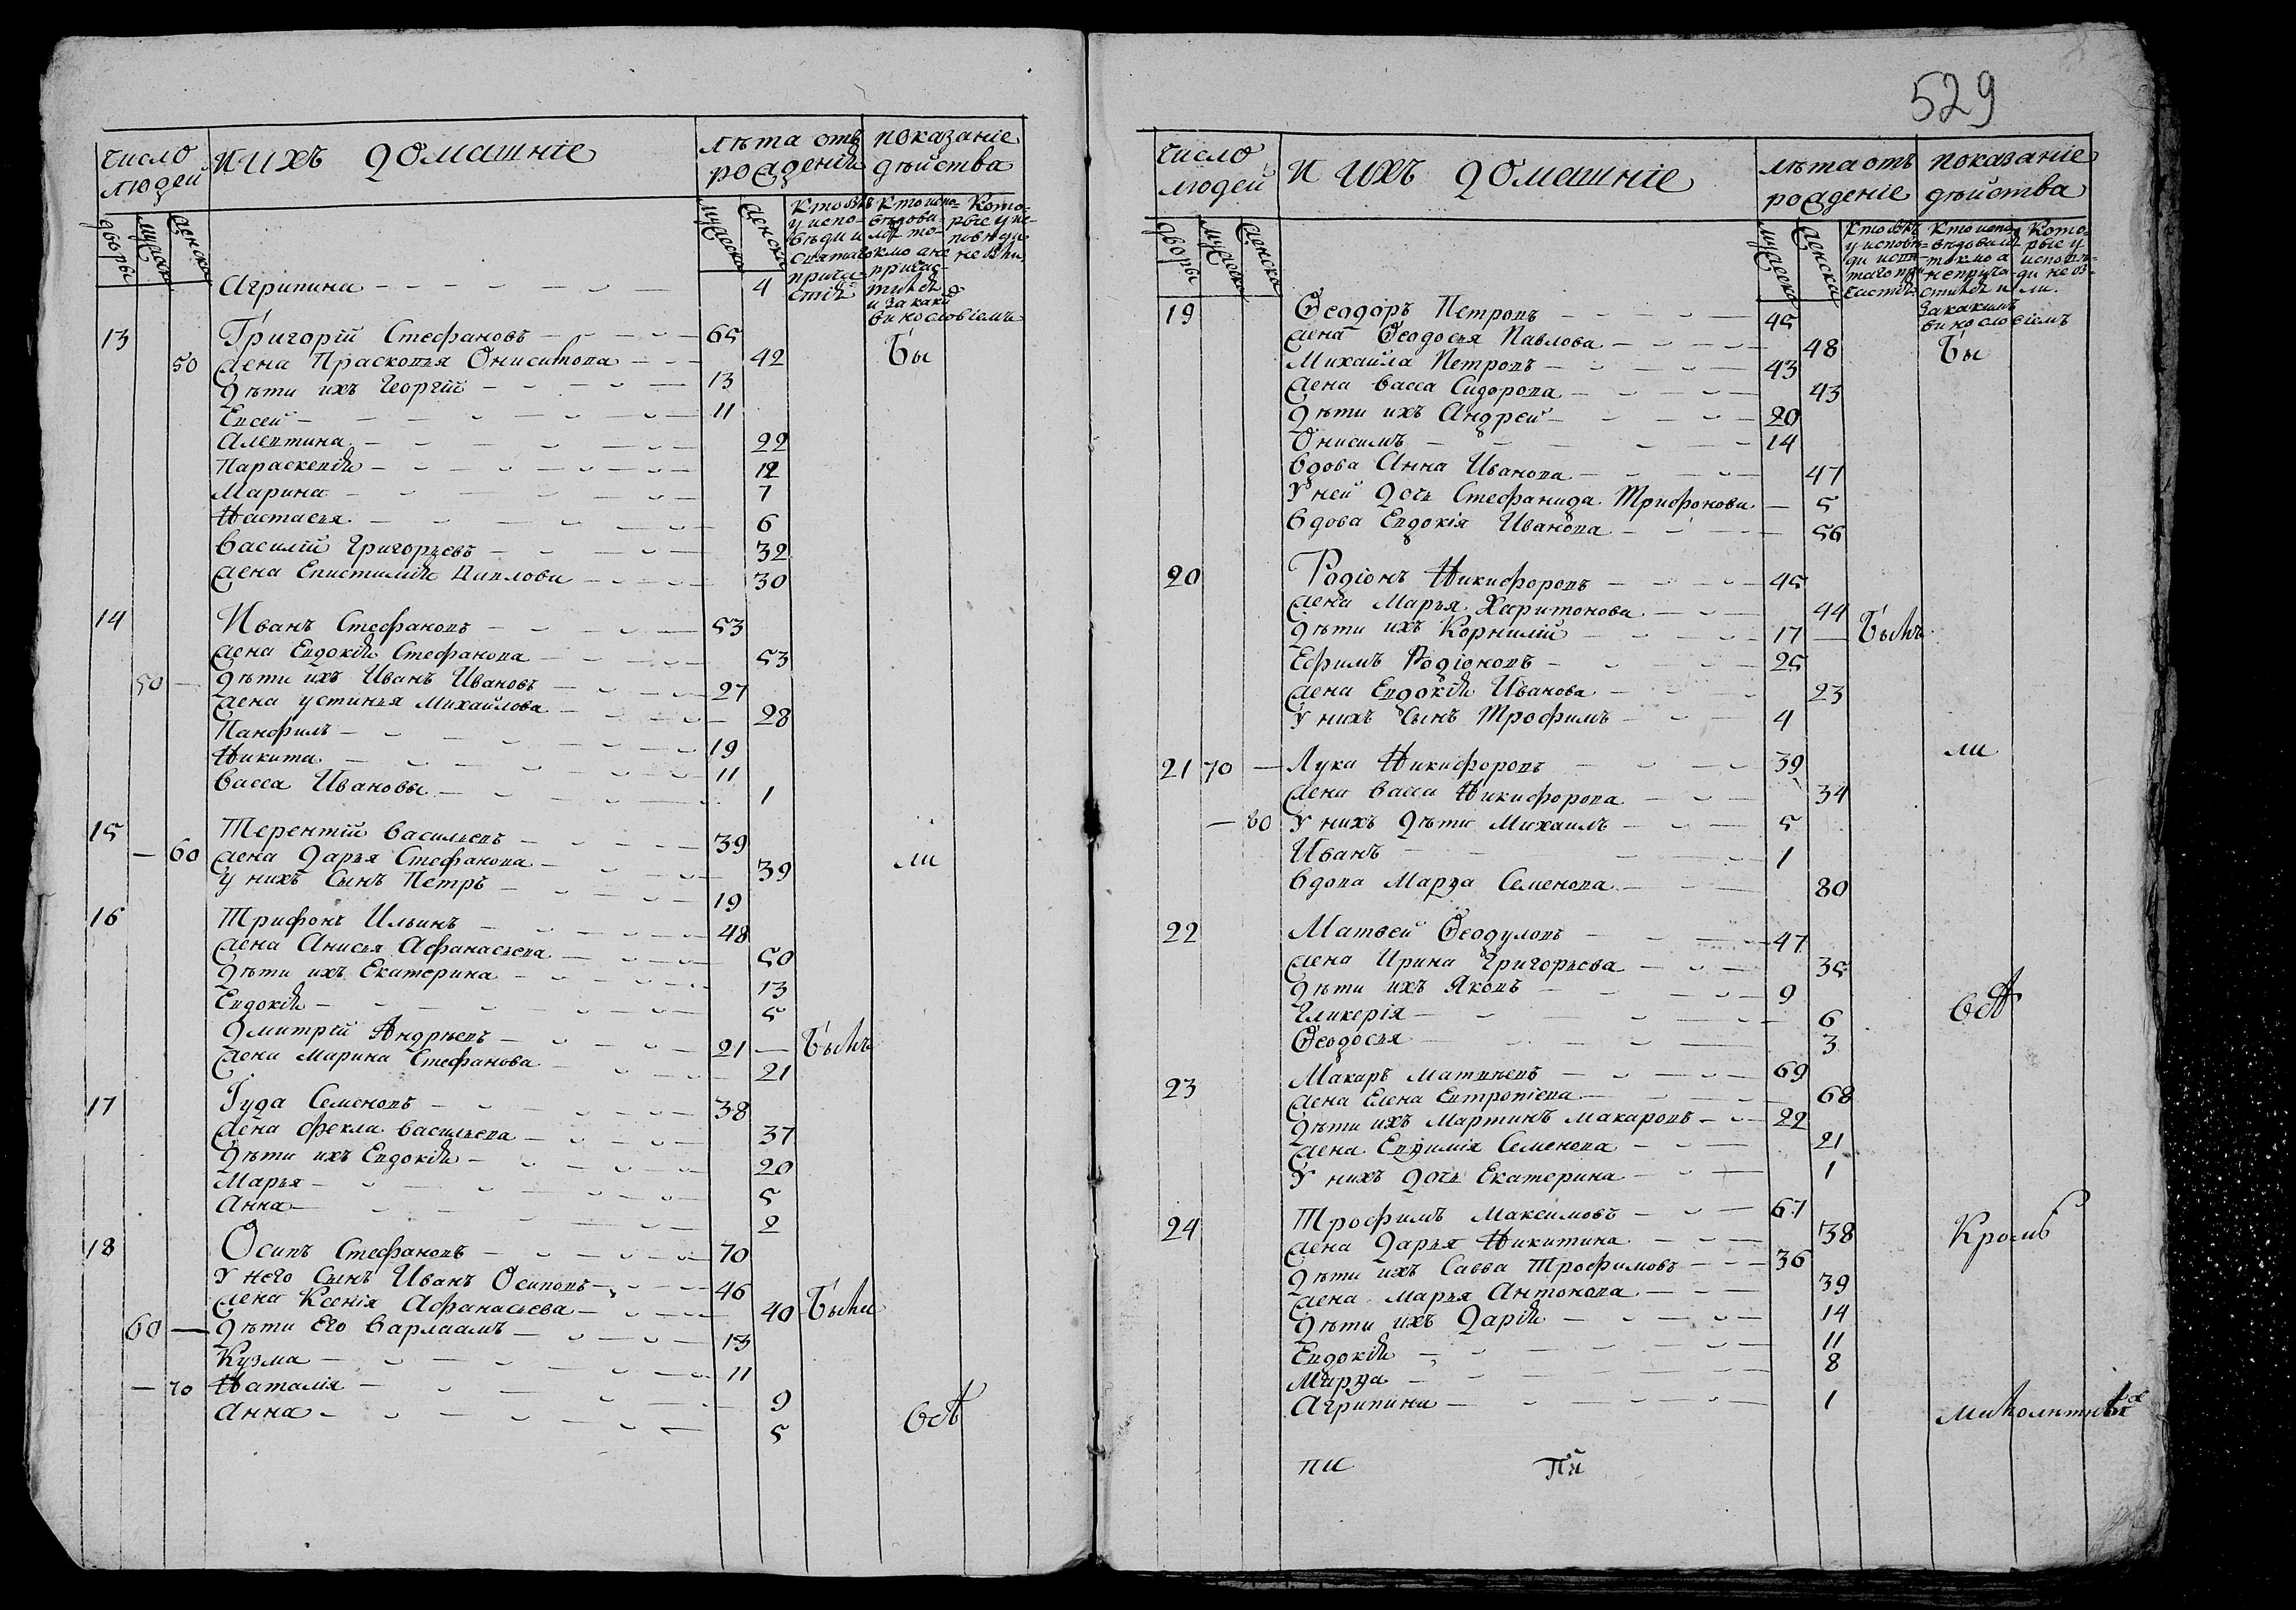 число людей
И ИХЪ ДОМАШНІЕ
лѣта отъ рожденія
показаніе дѣйства
дворы
мужеска
женска
мужеска
женска
Кто былъ у исповѣди и святаго причастія
Кто исповѣдовались токмо а не причастился и за какимъ винословіемъ
Которые у исповѣди не были
Агрипина 4
13 Григорій Стефановъ 65
50 жена Прасковья Ониситова 42 Бы
дѣти ихъ Георгій 13
Евсей 11
Алевтина 22
Параскевія 12
Марина 7
Настасья 6
Василій Григорьевъ 32
жена Епистимія Павлова 30
14 Иванъ Стефановъ 53
жена Евдокія Стефанова 53
50 дѣти ихъ Иванъ Ивановъ 27
жена устинья Михайлова 28
Панфилъ 19
Никита 11
Васса Иванова 1
15 Терентій Васильевъ 39
60 жена Дарья Стефанова 39 ли
у нихъ Сынъ Петръ 19
16 Трифонъ Ильинъ 48
жена Анисья Афанасьева 50
дѣти ихъ Екатерина 13
Евдокія 5
Дмитрій Андрѣевъ 21 Былъ
жена Марина Стефанова 21
17 Іуда Семеновъ 38
жена Фекла Васильева 37
дѣти ихъ Евдокія 20
Марья 5
Анна 2
18 Осипъ Стефановъ 70
У него Сынъ Иванъ Осиповъ 46
жена Ксенія Афанасьева 40 Были
60 дѣти Его Варлаамъ 13
Кузма 11
70 Наталія 9
Анна 5 всѣ
529
число людей
И ИХЪ ДОМАШНІЕ
лѣта отъ рожденіе
показаніе дѣйства
дворы
мужеска
женска
мужеска
женска
Кто былъ у исповѣди и святаго причастія
Кто исповѣдовались токмо а не причастился и за какимъ винословіемъ
Которые у исповѣди не были.
19 Ѳеодоръ Петровъ 45
жена Ѳеодосья Павлова 48 Бы
Михайла Петровъ 43
жена Васса Сидорова 43
дѣти ихъ Андрей 20
Онисимъ 14
вдова Анна Иванова 47
У ней дочь Стефанида Трифонова 5
вдова Евдокія Иванова 56
20 Родіонъ Никифоровъ 45
жена Марья Харитонова 44
дѣти ихъ Корнилій 17 Былъ
Ефимъ Родіоновъ 25
жена Евдокія Иванова 23
У нихъ Сынъ Трофимъ 4
21 70 Лука Никифоровъ 39 ли
жена Васса Никифорова 34
80 У нихъ дѣти Михаилъ 5
Иванъ 1
вдова Марѳа Семенова 80
22 Матвей Ѳеодуловъ 47
жена Ирина Григорьева 35
дѣти ихъ Яковъ 9
Гликерія 6 всѣ
Ѳеодосья 3
23 Макаръ Матвѣевъ 69
жена Елена Евтропіева 68
дѣти ихъ Мартинъ Макаровъ 22
жена Евфимія Семенова 21
У нихъ дочь Екатерина 1
24 Трофимъ Максимовъ 61
жена Дарья Никитина 38 Кромѣ
дѣти ихъ Савва Трофимовъ 36
жена Марья Антонова 39
дѣти ихъ Дарія 14
Евдокія 11
Марѳа 8
Агрипина 1 малолѣтныхъ